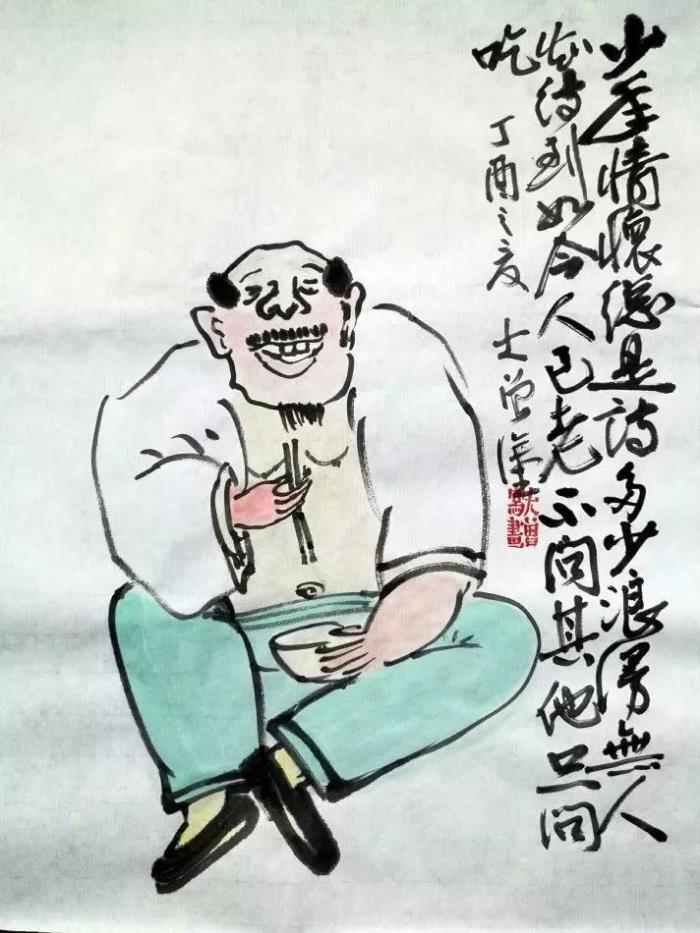 少年情懷总是詩多少浪漫無人
知待到如今人已老不问其他只问
吃
丁酉之夏